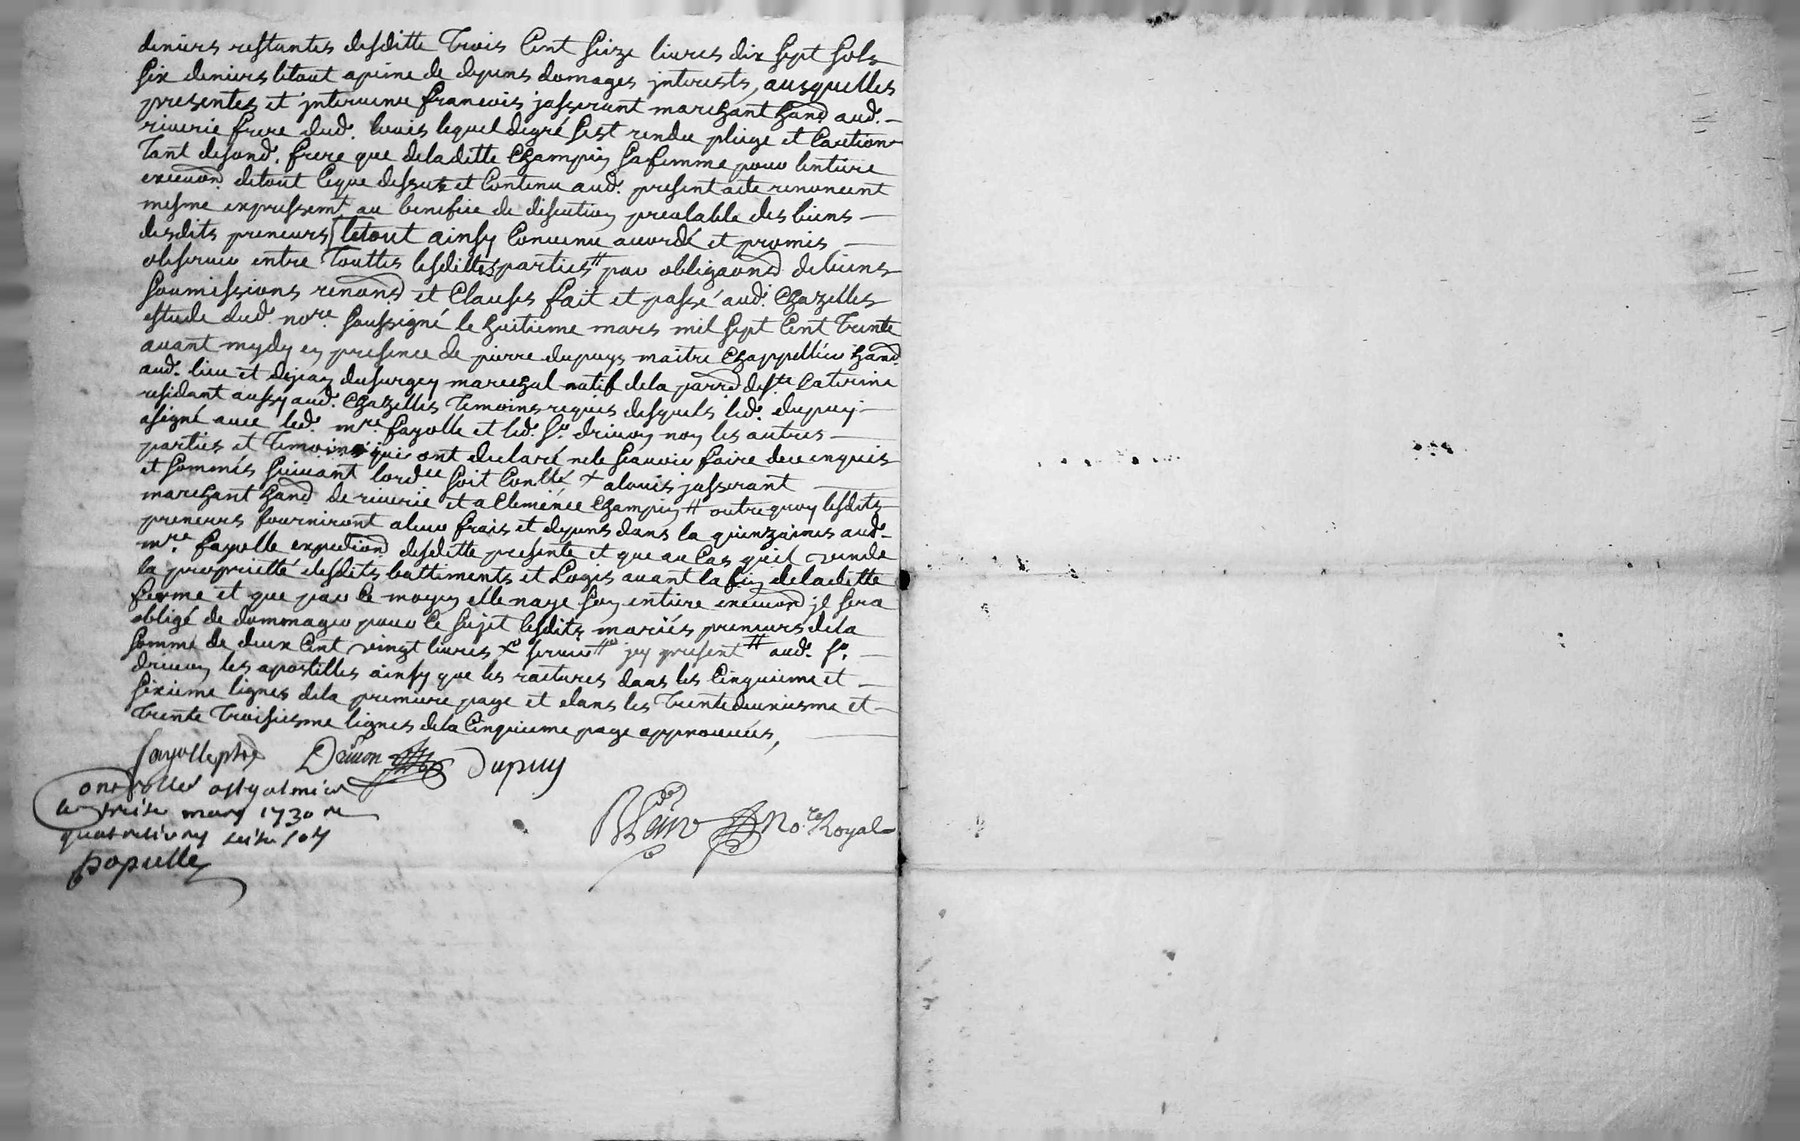 deniers restantes desditte Trois Cent Seize livres dix Sept Sols
Six deniers letout apeine de depens domages jnterests, ausquelles
presentes et jntervenu francois jasserant marchant hand. aud.
riverie frere dud. louis lequel degré sest rendu pleige et Caution
Tant desond. frere que deladitte Champin Safemme pour lentiere
execuon. detout Ceque dessus et Contenu aud. present acte renoncent
mesme expressemt. au benefice de discution prealable des biens
desdits preneurs letout ainsy Convenu acordé et promis
observer entre Touttes lesdittes parties # par obligaons. debiens
Soumissions renons. et Clauses fait et passé aud. Chazelles
estude dud. nore. Soussigné le huitieme mars mil Sept Cent Trente
avant mydy en presence de pierre dupuys maitre Chappellier hand.
aud. lieu et dejean dusurgey marechal natif dela parre. de Ste. Caterine
residant aussy aud. Chazelles Temoins requis desquels led. dupuy
asigné avec led. mre. fayolle et led. Sr. drivon non les autres
parties et Temoins qui ont declaré nele Scavoir faire dece enquis
et Sommés Suivant lordce Soit Conllé + alouis jasserant
marchant hand. de riverie et a Cleménce Champin # outre quoy lesdits
preneurs fourniront aleur frais et depens dans la quinzaines aud.
mre. fayolle expedion. desditte presente et que au Cas quil vende
la proprietté desdits battiments et Logis avant la fin deladitte
ferme et que par Ce moyen elle naye Son entiere execuon. jl Sera
obligé de dommager pour Ce Sujet lesdits mariés preneurs dela
Somme de deux Cent vingt livres jcy present # aud. Sr.
drivon les apostilles ainsy que les ratures dans les Cinquieme et
Sixieme lignes dela premiere page et dans les Trentedeuxiesme et
Trente Troisiesme lignes dela Cinquieme page approuvées,
fayolle ptre Drivon Dupuy
le treise mars 1730 re
quatre livres seise sols
nore. Royal
populle